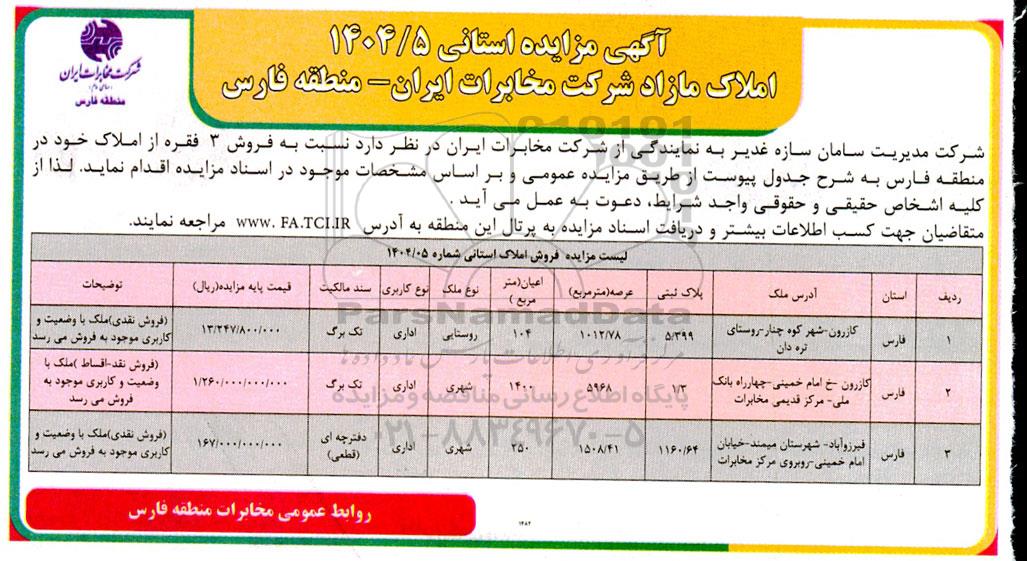 آگهی مزایده استانی ۱۴۰۴/۵
املاک مازاد شرکت مخابرات ایران- منطقه فارس
شرکت مخابرات ایران
(سهامی عام)
منطقه فارس
شرکت مدیریت سامان سازه غدیر به نمایندگی از شرکت مخابرات ایران در نظر دارد نسبت به فروش ۳ فقره از املاک خود در
منطقه فارس به شرح جدول پیوست از طریق مزایده عمومی و بر اساس مشخصات موجود در اسناد مزایده اقدام نماید. لذا از
کلیه اشخاص حقیقی و حقوقی واجد شرایط، دعوت به عمل می آید .
متقاضیان جهت کسب اطلاعات بیشتر و دریافت اسناد مزایده به پرتال این منطقه به آدرس WWW. FA.TCI.IR مراجعه نمایند.
لیست مزایده فروش املاک استانی شماره ۱۴۰۴/۰۵
ردیف استان آدرس ملک پلاک ثبتی عرصه(مترمربع) اعیان(متر مربع ) نوع ملک نوع کاربری سند مالکیت قیمت پایه مزایده(ریال) توضیحات
۱ فارس کازرون-شهر کوه چنار-روستای تره دان ۵/۳۹۹ ۱۰۱۲/۷۸ ۱۰۴ روستایی اداری تک برگ ۱۳/۲۴۷/۸۰۰/۰۰۰ (فروش نقدی)ملک با وضعیت و کاربری موجود به فروش می رسد
۲ فارس کازرون -خ امام خمینی-چهارراه بانک ملی- مرکز قدیمی مخابرات ۱/۳ ۵۹۶۸ ۱۴۰۰ شهری اداری تک برگ ۱/۲۶۰/۰۰۰/۰۰۰/۰۰۰ (فروش نقد-اقساط )ملک با وضعیت و کاربری موجود به فروش می رسد
۳ فارس فیرزوآباد- شهرستان میمند-خیابان امام خمینی-روبروی مرکز مخابرات ۱۱۶۰/۶۴ ۱۵۰۸/۴۱ ۲۵۰ شهری اداری دفترچه ای (قطعی) ۱۶۷/۰۰۰/۰۰۰/۰۰۰ (فروش نقدی)ملک با وضعیت و کاربری موجود به فروش می رسد
ParsNamadData
پایگاه اطلاع رسانی مناقصه و مزایده
۰۲۱-۸۸۳۴۹۶۷۰-۵
روابط عمومی مخابرات منطقه فارس
۱۴۸۲